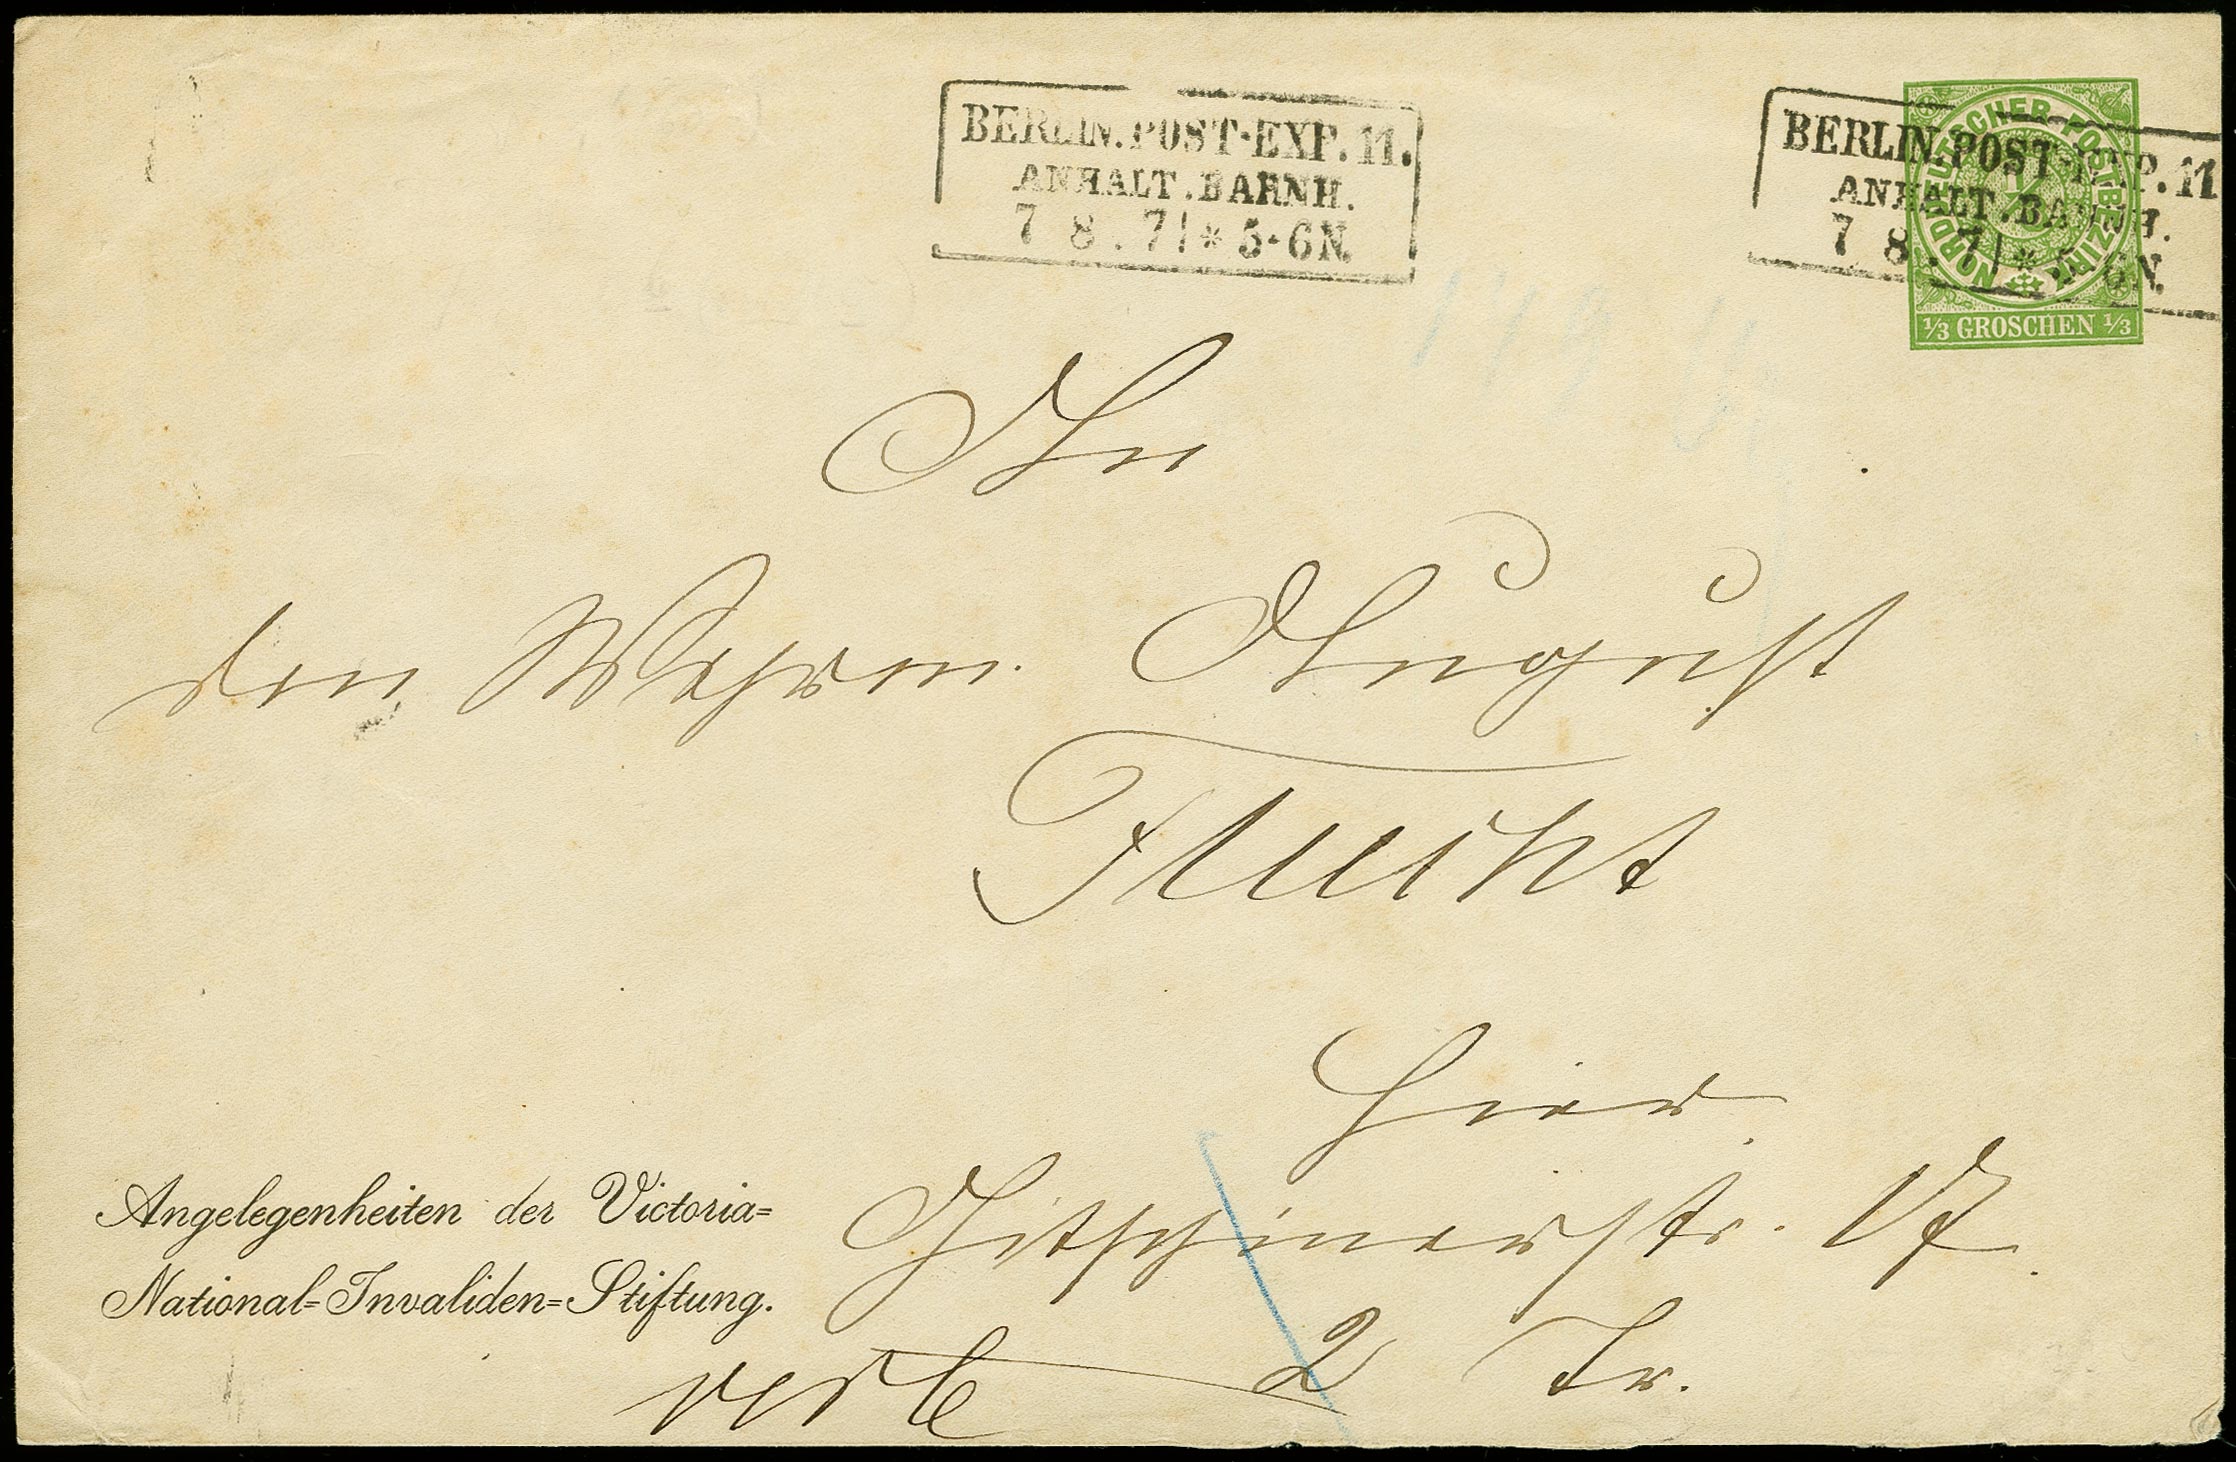 BERLIN.POST-EXP.11.
ANHALT.BARNH.
7 8.71*5-6N.
BERLIN.POST-EXP.11
ANHALT.BARNH.
7 8.71*5-6N.
NORDDEUTSCHER POSTBEZIRK
1/3 GROSCHEN 1/3
An
den August
Flucht
Hier
Gitschinerstr. 17
2 Tr.
Angelegenheiten der Victoria=
National=Invaliden=Stiftung.